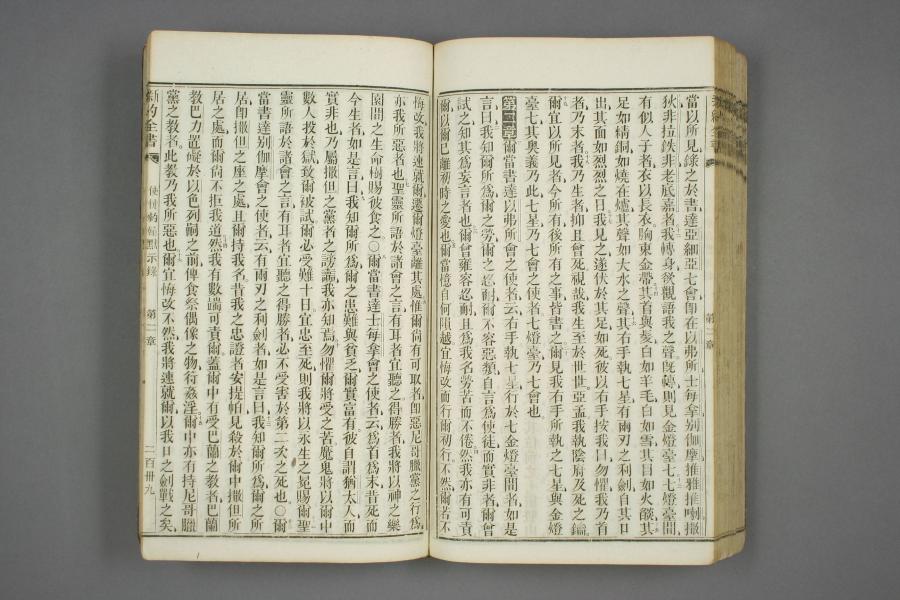 當以所見錄之於書達亞細亞七會卽在以弗所士每拿別伽摩推雅推喇撒
狄非拉鉄非老底嘉者我轉身欲觀語我之聲旣轉則見金燈臺七七燈臺間
有似人子者衣以長衣胸束金帶其首與髮白如羊毛白如雪其目如火燄其
足如精銅如燒在爐其聲如大水之聲其右手執七星有兩刃之利劍自其口
出其面如烈烈之日我見之遂伏於其足如死彼以右手按我曰勿懼我乃首
者乃末者我乃生者抑且曾死視哉我生至於世世亞孟我執陰府及死之鑰
爾宜以所見者今所有後所有之事皆書之爾見我右手所執之七星與金燈
臺七其奧義乃此七星乃七會之使者七燈臺乃七會也
第二章爾當書達以弗所會之使者云右手執七星行於七金燈臺間者如是
言曰我知爾所爲爾之勞爾之忍耐爾不容惡類自言爲使徒而實非者爾曾
試之知其爲妄言者也爾曾雍容忍耐且爲我名勞苦而不倦然我亦有可責
爾以爾已離初時之愛也爾當憶自何隕越宜悔改而行爾初行不然爾若不
悔改我將速就爾遷爾燈臺離其處惟爾尙有可取者卽惡尼哥臘黨之行爲
亦我所惡者也聖靈所語於諸會之言有耳者宜聽之得勝者我將以神之樂
園間之生命樹賜彼食之〇爾當書達士每拿會之使者云爲首爲末昔死而
今生者如是言曰我知爾所爲爾之患難與貧乏爾實富有彼自謂猶太人而
實非也乃屬撒但之黨者之謗讟我亦知焉勿懼爾將受之苦魔鬼將以爾中
數人投於獄致爾被試爾必受難十日宜忠至死則我將以永生之冕賜爾聖
靈所語於諸會之言有耳者宜聽之得勝者必不受害於第二次之死也〇爾
當書達別伽摩會之使者云有兩刃之利劍者如是言曰我知爾所爲爾之所
居卽撒但之座之處且爾持我名昔我之忠證者安提帕見殺於爾中撒但所
居之處而爾尙不拒我道然我有數端可責爾蓋爾中有受巴蘭之教者巴蘭
教巴力置礙於以色列嗣之前俾食祭偶像之物行姦淫爾中亦有持尼哥臘
黨之教者此教乃我所惡也爾宜悔改不然我將速就爾以我口之劍戰之矣
新約全書
使徒約翰默示錄
第二章
二百卅九